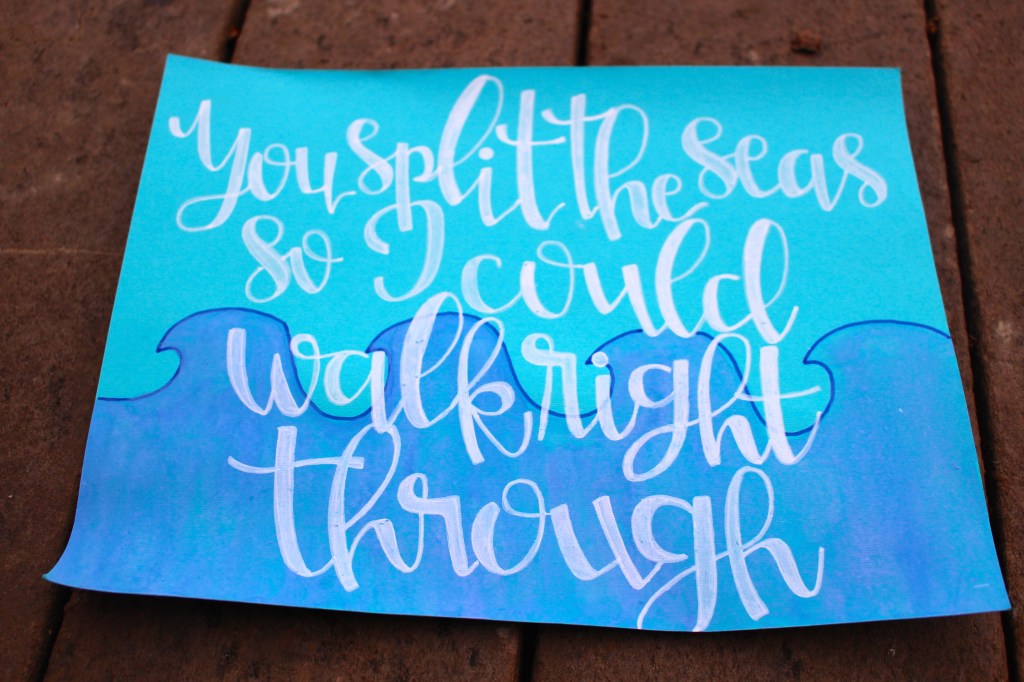 You split the seas
so I could
walk right
through